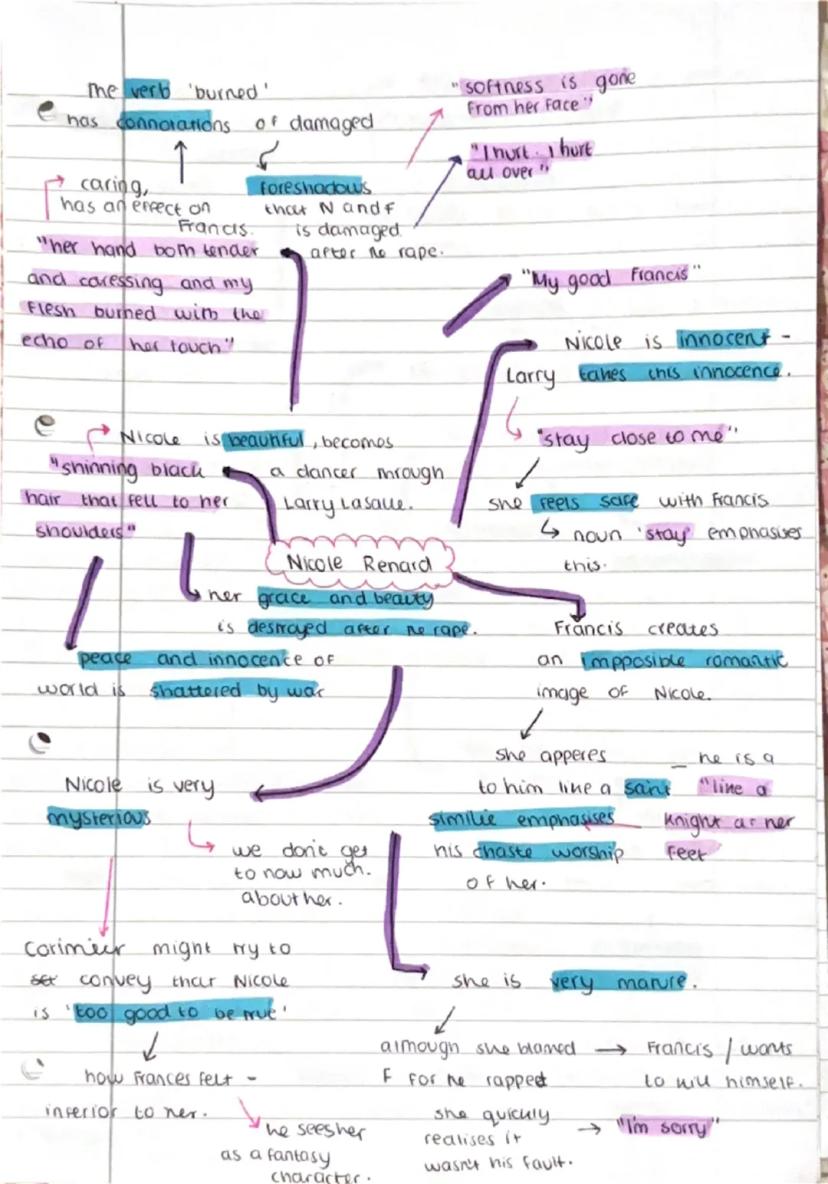 The verb 'burned'
has connotations of damaged
foreshadows
that N and F
is damaged
after the rape.
"softness is gone
from her face"
"I hurt. I hurt
all over"
caring,
has an effect on
Francis.
"her hand both tender
and caressing and my
flesh burned with the
echo of her touch"
"My good Francis"
Nicole is innocent -
Larry takes this innocence.
"stay close to me"
she feels safe with Francis
noun 'stay' emphasises
this.
Nicole is beautiful, becomes
a dancer through
Larry LaSalle.
"shinning black
hair that fell to her
shoulders"
Nicole Renard
her grace and beauty
is destroyed after the rape.
peace and innocence of
world is shattered by war
Francis creates
an impposible romantic
image of Nicole.
she apperes
to him like a saint
similie emphasises
his chaste worship
of her.
_ he is a
"like a
knight at her
feet
Nicole is very
mysterious
we don't get
to know much.
about her.
Corimier might try to
set convey that Nicole
is 'too good to be true'
how Frances felt -
inferior to her.
he sees her
as a fantasy
character.
she is very mature.
although she blamed
F for the rapped
Francis / wants
to kill himself.
she quickly
realises it
wasn't his fault.
"I'm sorry"